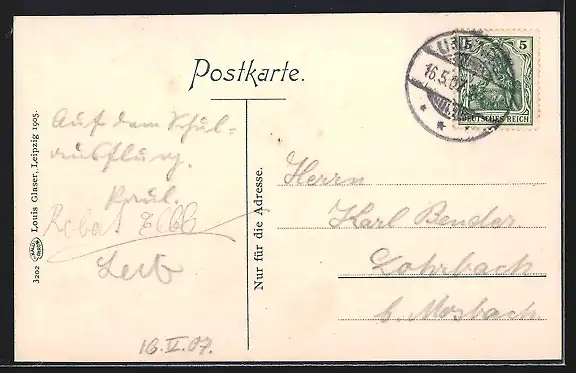 Postkarte.
16.5.07
5
DEUTSCHES REICH
Auf dem Schul-
ausflug.
Paul.
Robert
16.V.07.
3202
Louis Glaser, Leipzig 1905.
Nur für die Adresse.
Herrn
Karl Bender
Lohrbach
b. Mosbach